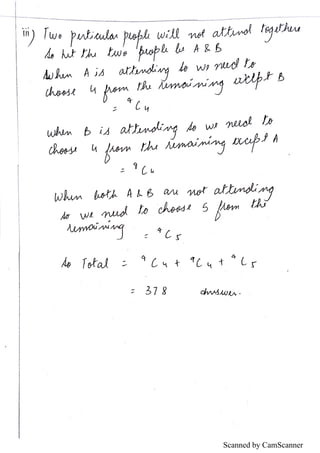 iii) Two particular people will not attend together
so let the two people be A & B
When A is attending so we need to
choose 4 from the remaining except B
= ⁹C₄
when B is attending so we need to
choose 4 from the remaining except A
= ⁹C₄
When both A & B are not attending
so we need to choose 5 from the
remaining = ⁹C₅
So Total = ⁹C₄ + ⁹C₄ + ⁹C₅
= 378 answer.
Scanned by CamScanner